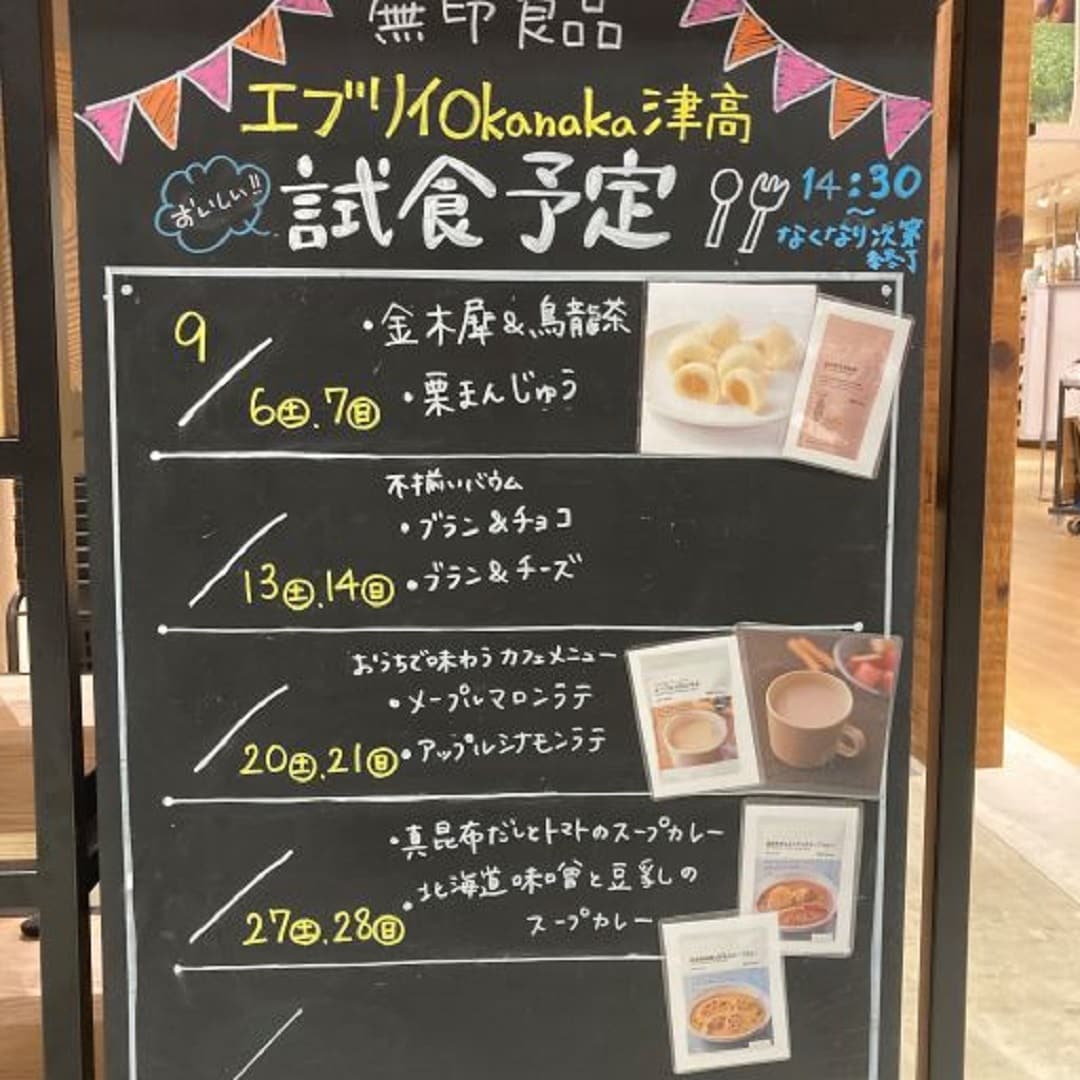 無印良品
エブリイOkanaka津高
おいしい!!
試食予定
14:30
〜
なくなり次第
終了
9
6㊏.7㊐
・金木犀&烏龍茶
・栗まんじゅう
不揃いバウム
・ブラン&チョコ
13㊏.14㊐ ・ブラン&チーズ
おうちで味わうカフェメニュー
・メープルマロンラテ
20㊏.21㊐ ・アップルシナモンラテ
・真昆布だしとトマトのスープカレー
・北海道味噌と豆乳しの
27㊏.28㊐ スープカレー